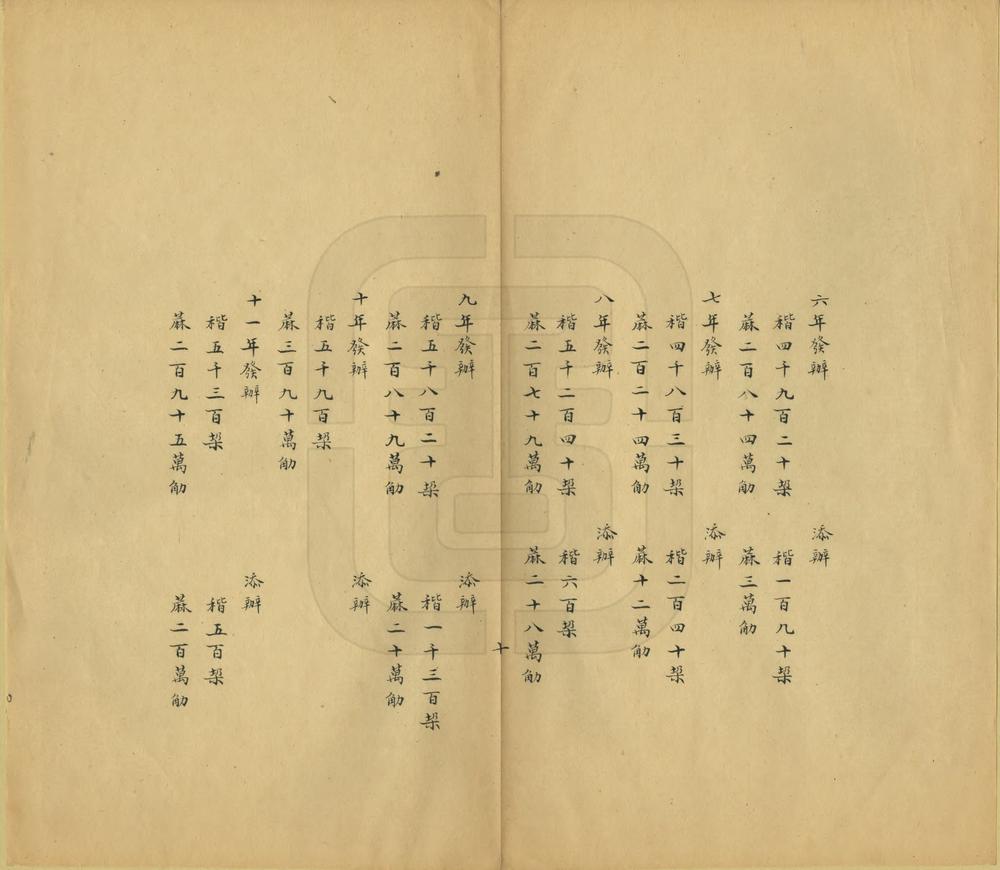 六年發辦　添辦
稭四千九百二十垛　稭一百九十垛
蔴二百八十四萬觔　蔴三萬觔
七年發辦　添辦
稭四千八百三十垛　稭二百四十垛
蔴二百二十四萬觔　蔴十二萬觔
八年發辦　添辦
稭五千二百四十垛　稭六百垛
蔴二百七十九萬觔　蔴二十八萬觔
十
九年發辦　添辦
稭五千八百二十垛　稭一千三百垛
蔴二百八十九萬觔　蔴二十萬觔
十年發辦　添辦
稭五千九百垛
蔴三百九十萬觔
十一年發辦　添辦
稭五千三百垛　稭五百垛
蔴二百九十五萬觔　蔴二百萬觔